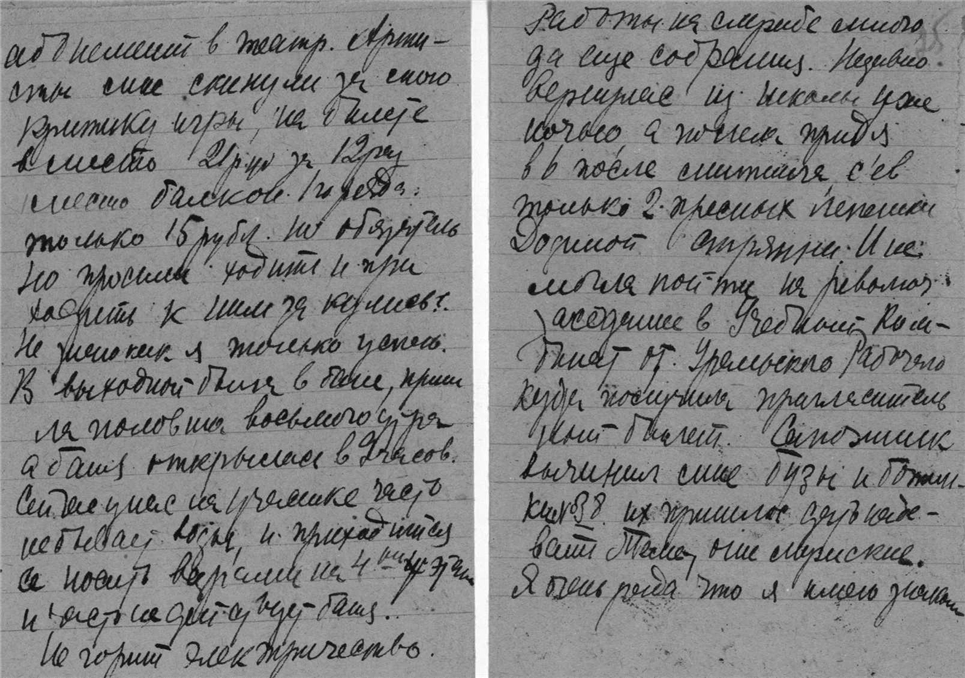 абонемент в театр. Арти-
сты мне скинули за мою
критику игры, на билете
вместо 21 руб за 12 раз
место балкон. 1го ряда.
только 15 рубл. но обязатель
но просили ходить и при
ходить к ним за кулисы.
Не знаю как я только успею.
В выходной была в бане, приш
ла половина восьмого утра
а баня открылась в 9 часов.
Сейчас у нас на участке часто
не бывает воды, и приходится
ее носить ведрами на 4 этаж
и часто не действует баня.
Не горит электричество.
Работы на службе много
да еще собрания. Недавно
вернулась из школы уже
ночью, а поспела придя
в 6 после митинга, с'ев
только 2 пресных лепешки
Домной стряпни. И не
могла пойти на
заседание в Учебный Ком-
бинат от Уральского Рабочего
куда получила пригласитель
ный билет. Сапожник
вычинил мне бузы и ботин-
ки №38. их пришлось наде-
вать Тате, они мужские.
Я очень рада что я имею знаком